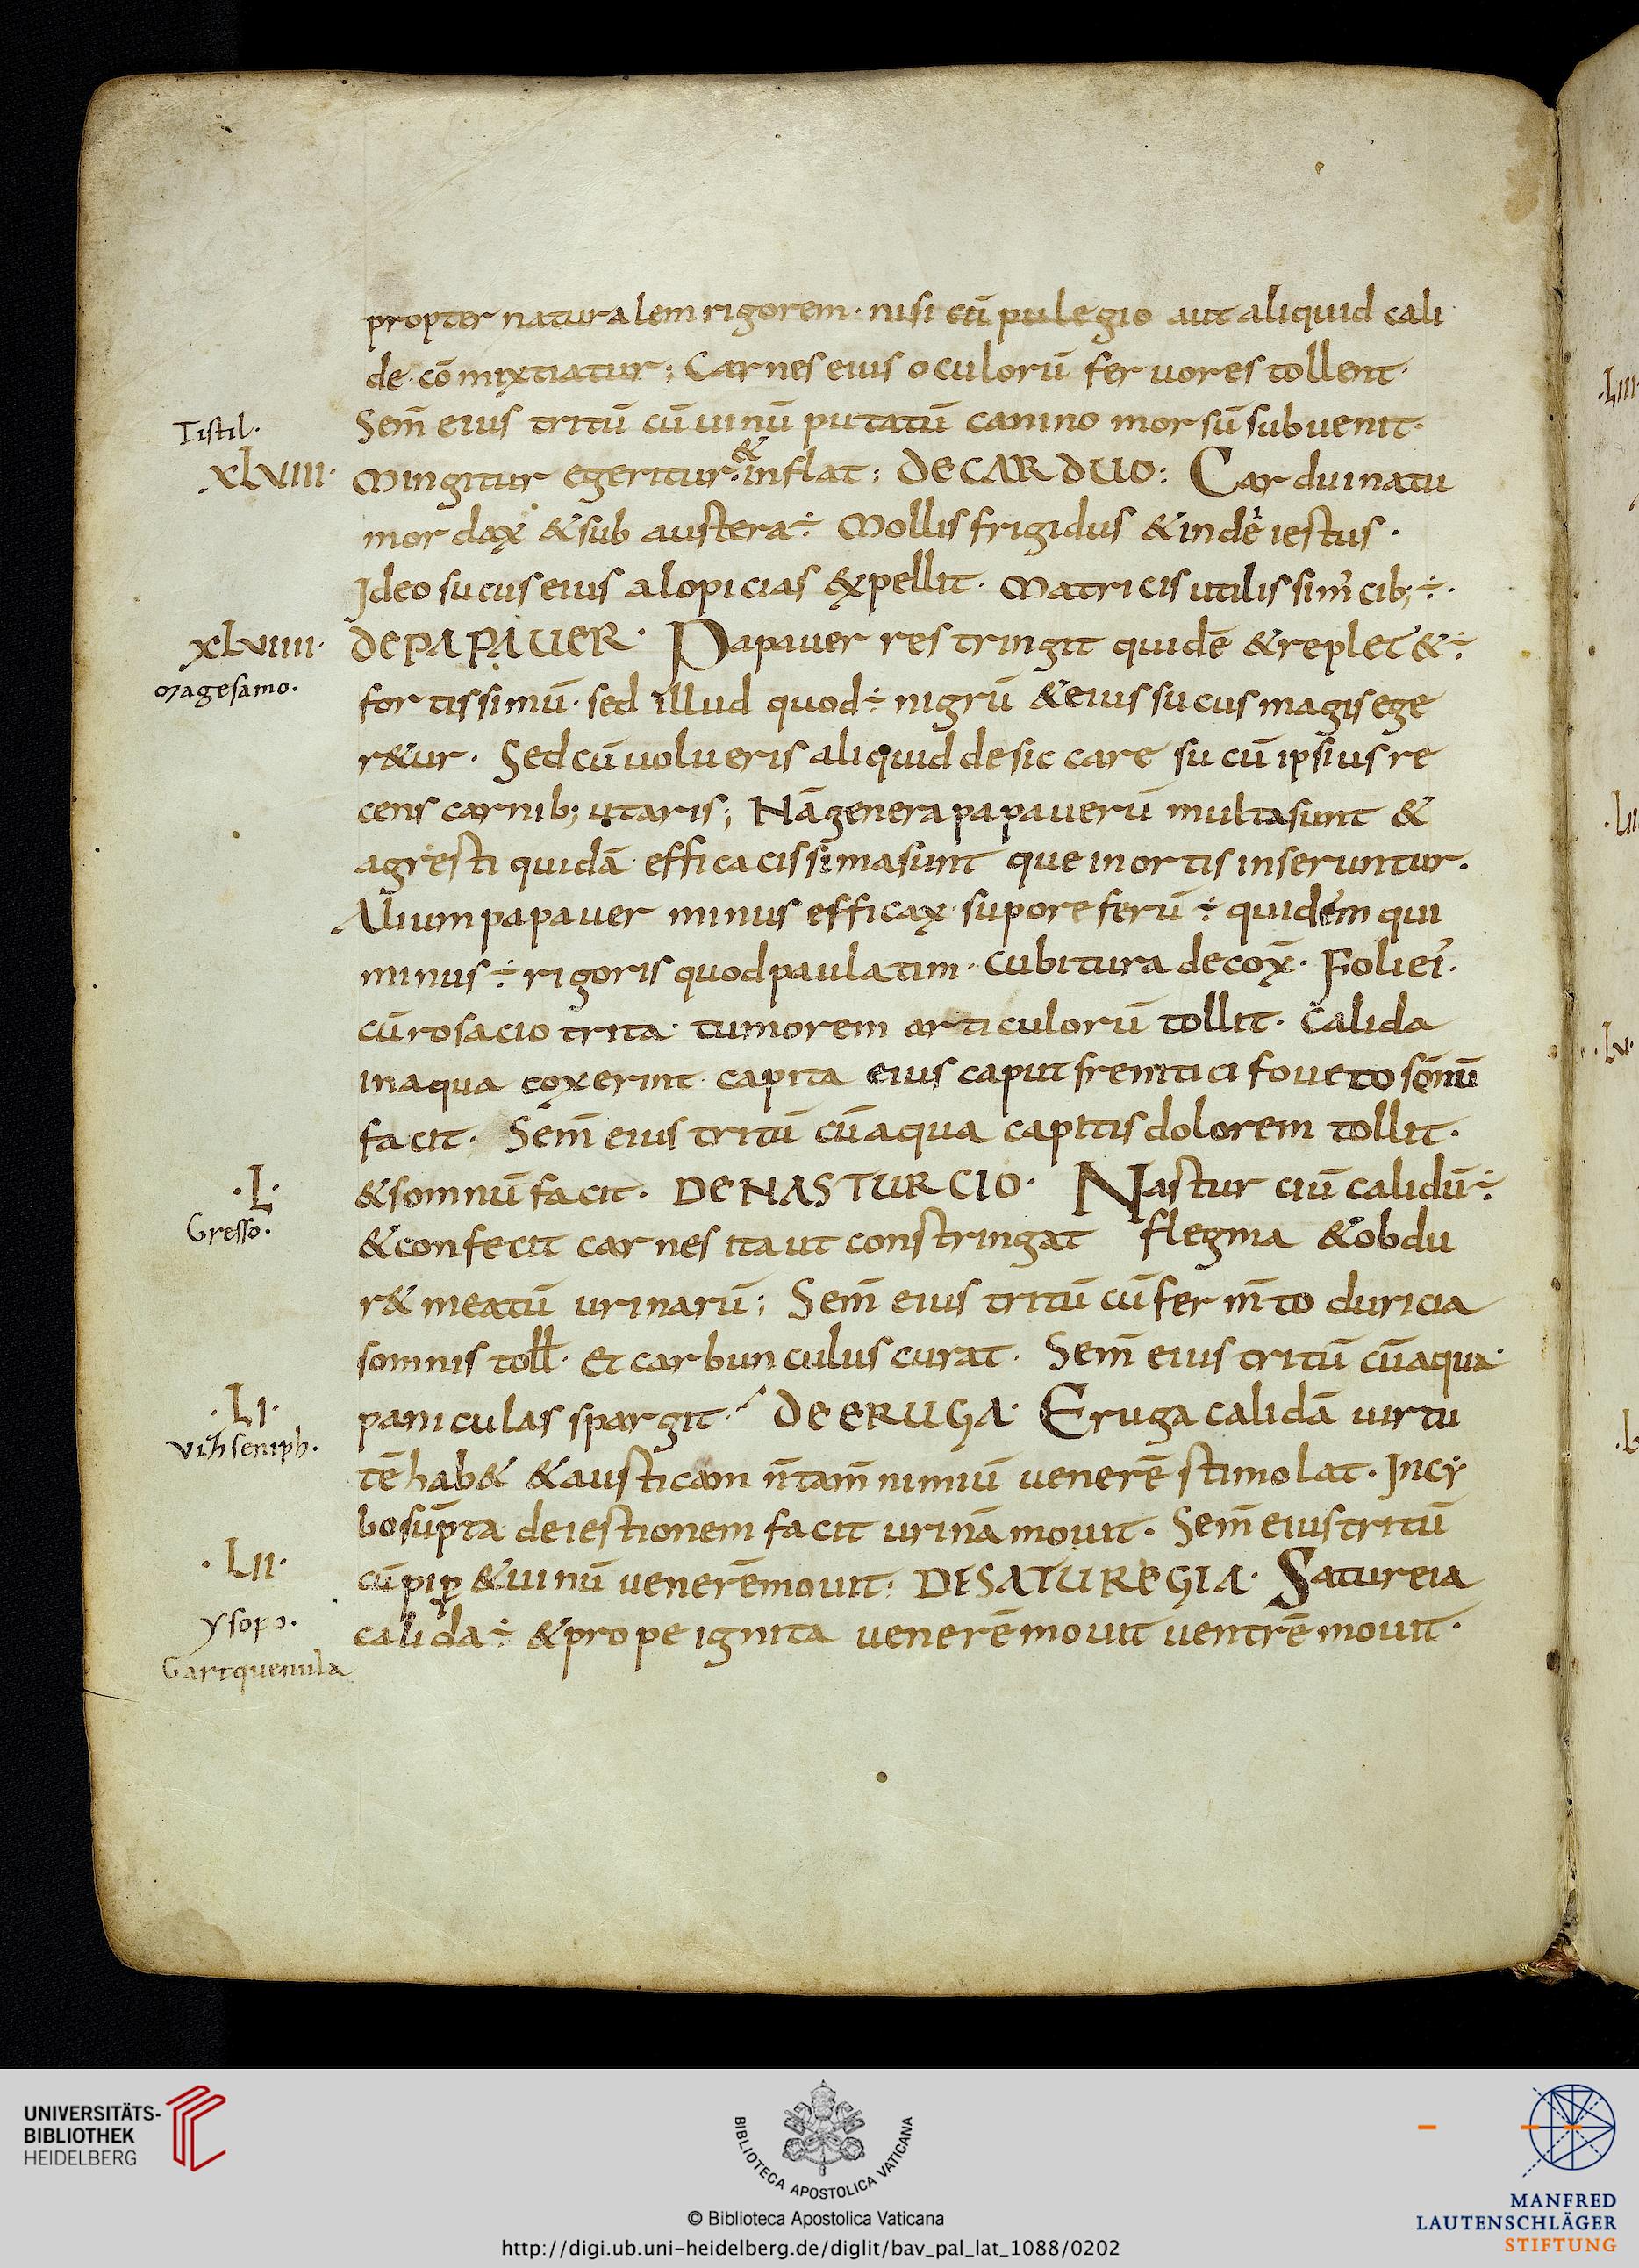 propter naturalem rigorem · nisi cū pulegio aut aliquid cali
de · cō mixtiatur ; Carnes eius oculorū fervores tollent ·
Tistil ·
Sem̄ eius tritū cū uinū putatū canino morsū subuenit ·
xlviii ·
Mingitur egeritur · & inflat ; DE CARDUO : Cardui natu
mordax & sub austera ÷ Mollis frigidus & inde iestus ·
Ideo sucus eius alopicias expellit · Matricis utilissim̄ cib; ÷ ·
xlviiii ·
DE PAPAUER · Papauer restringit quidē & replet & ÷
magesamo ·
fortissimū · sed illud quod ÷ nigrū & eius sucus magis ege
r&ur · Sed cū uolueris aliquid desiccare sucū ipsius re
cens carnib; utaris ; Nā genera papauerū multa sunt &
agresti quidā efficacissima sunt que in ortis inseruntur ·
Alium papauer minus efficax · suporeferū ÷ quidem qui
minus ÷ rigoris quod paulatim · cubitura decox̄ · Foli ei ·
cū rosacio trita · tumorem articulorū tollit · Calida
in aqua coxerint capita eius caput frenitici foueto sōnū
facit · Sem̄ eius tritū cū aqua capitis dolorem tollit ·
· L ·
& somnū facit · DE NASTURCIO · Nasturciū calidū ÷
Gresso ·
& confecit carnes ita ut constringat flegma & obdu
r& meatū urinarū ; Sem̄ eius tritū cū ferm̄to duricia
somnis toll · Et carbunculus curat · Sem̄ eius tritū cū aqua ·
· LI ·
paniculas spargit · DE ERUGA · Eruga calidā uirtu
vih semph ·
tē hab& & austicam n̄ tam̄ nimiū venerē stimolat · In cy
bo sūpta deiestionem facit urinā mouit · Sem̄ eius tritū
· LII ·
cū pip & uinū venerē mouit : DE SATUREGIA · Satureia
ysopo ·
calida ÷ & prope ignita venerē mouit ventrē mouit ·
Gartquenula
UNIVERSITÄTS-
BIBLIOTHEK
HEIDELBERG
BIBLIOTECA APOSTOLICA VATICANA
© Biblioteca Apostolica Vaticana
http://digi.ub.uni-heidelberg.de/diglit/bav_pal_lat_1088/0202
MANFRED
LAUTENSCHLÄGER
STIFTUNG